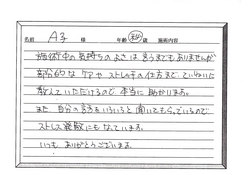 名前 A子 様 年齢 秘 歳 施術内容
施術中の気持ちのよさは言うまでもありませんが
部分的なケアやストレッチの仕方まで ていねいに
教えていただけるので 本当に助かります。
また 自分の話もいろいろと聞いてもらっているので
ストレス発散にもなっています。
いつも ありがとうございます。